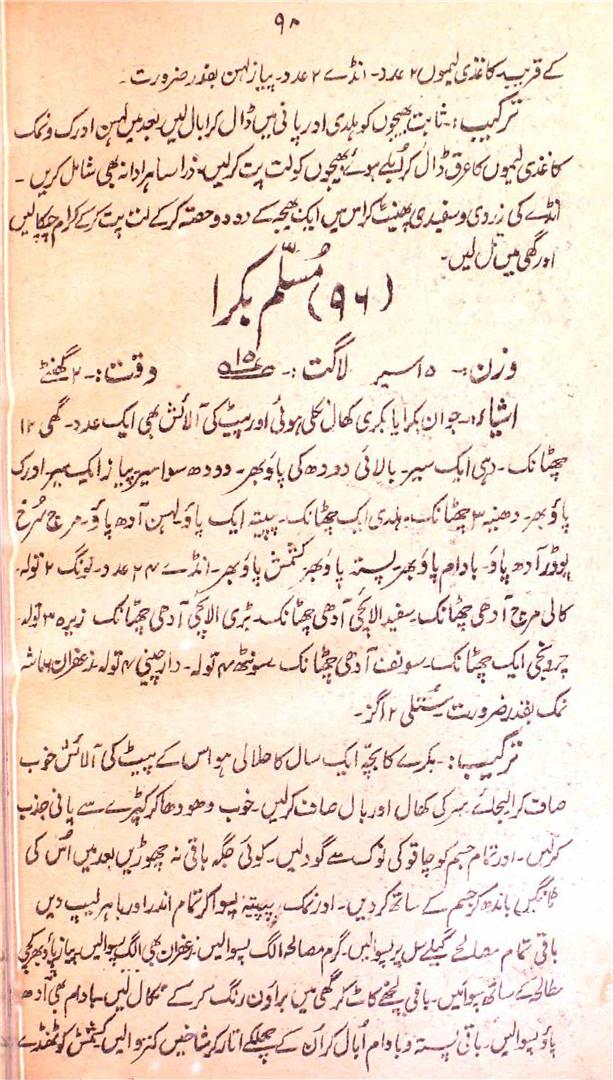 ۹۸
کے قریب۔ کاغذی لیموں ۲ عدد۔ انڈے ۲ عدد۔ پیاز لہسن بقدر ضرورت۔
ترکیب:۔ ثابت بھیجوں کو ہلدی اور پانی میں ڈال کر ابال لیں۔ بعد میں لہسن ادرک و نمک
کاغذی لیموں کا عرق ڈال کر اُبلے ہوئے بھیجوں کو لت پت کر لیں۔ ذرا سا ہرا دانہ بھی شامل کریں۔
انڈے کی زردی و سفیدی پھینٹ کر اس میں ایک بھیجہ کے دو دو حصّہ کر کے لت پت کر کے
اور گھی میں تل لیں۔
(۹۶) مُسلّم بکرا
وزن:۔ ۱۵ سیر لاگت:۔ وقت:۔ ۲ گھنٹے
اشیاء:۔ جوان بکرا یا بکری کھال نکلی ہوئی اور پیٹ کی آلائش بھی ایک عدد۔ گھی ۱۲
چھٹانک۔ دہی ایک سیر۔ بالائی دودھ کی پاؤ بھر۔ دودھ سوا سیر پیاز ایک سیر۔ ادرک
پاؤ بھر۔ دھنیہ ۳ چھٹانک۔ ہلدی ایک چھٹانک۔ پپیتہ ایک پاؤ۔ لہسن آدھ پاؤ۔ مرچ سُرخ
پوڈر آدھ پاؤ۔ بادام پاؤ بھر۔ پستہ پاؤ بھر۔ کشمش پاؤ بھر۔ انڈے ۲۴ عدد۔ لونگ ۲ تولہ
کالی مرچ آدھی چھٹانک۔ سفید الائچی آدھی چھٹانک۔ بڑی الائچی آدھی چھٹانک زیرہ ۳ تولہ۔
چرونجی ایک چھٹانک۔ سونف آدھی چھٹانک سونٹھ ۴ تولہ۔ دار چینی ۴ تولہ۔ زعفران ماشہ
نمک بقدر ضرورت۔ سُتلی ۲ گز۔
ترکیب:۔ بکرے کا بچّہ ایک سال کا حلالی ہو اس کے پیٹ کی آلائش خوب
صاف کرا لیجئے۔ سر کی کھال اور بال صاف کر لیں۔ خوب دھو دھا کر کپڑے سے پانی جذب
کر لیں۔ اور تمام جسم کو چاقو کی نوک سے گود لیں۔ کوئی جگہ باقی نہ چھوڑیں بعد میں اُس کی
ٹانگیں باندھ کر جسم کے ساتھ کر دیں۔ اور نمک، پپیتہ پسوا کر تمام اندر اور باہر لیپ دیں
باقی تمام مصالحے گیلے سل پر پسوالیں۔ گرم مصالحہ الگ پسوالیں۔ زعفران بھی الگ پسوالیں پیاز پاؤ بھر کچی
مصالحے کے ساتھ پسوائیں۔ باقی لچھے کاٹ کر گھی میں براؤن رنگ کر کے نکال لیں۔ بادام بھی آدھ
پاؤ پسوالیں۔ باقی پستہ و بادام اُبال کر ان کے چھلکے اتار کر شاخیں کتروالیں کشمش کو ٹھنڈے